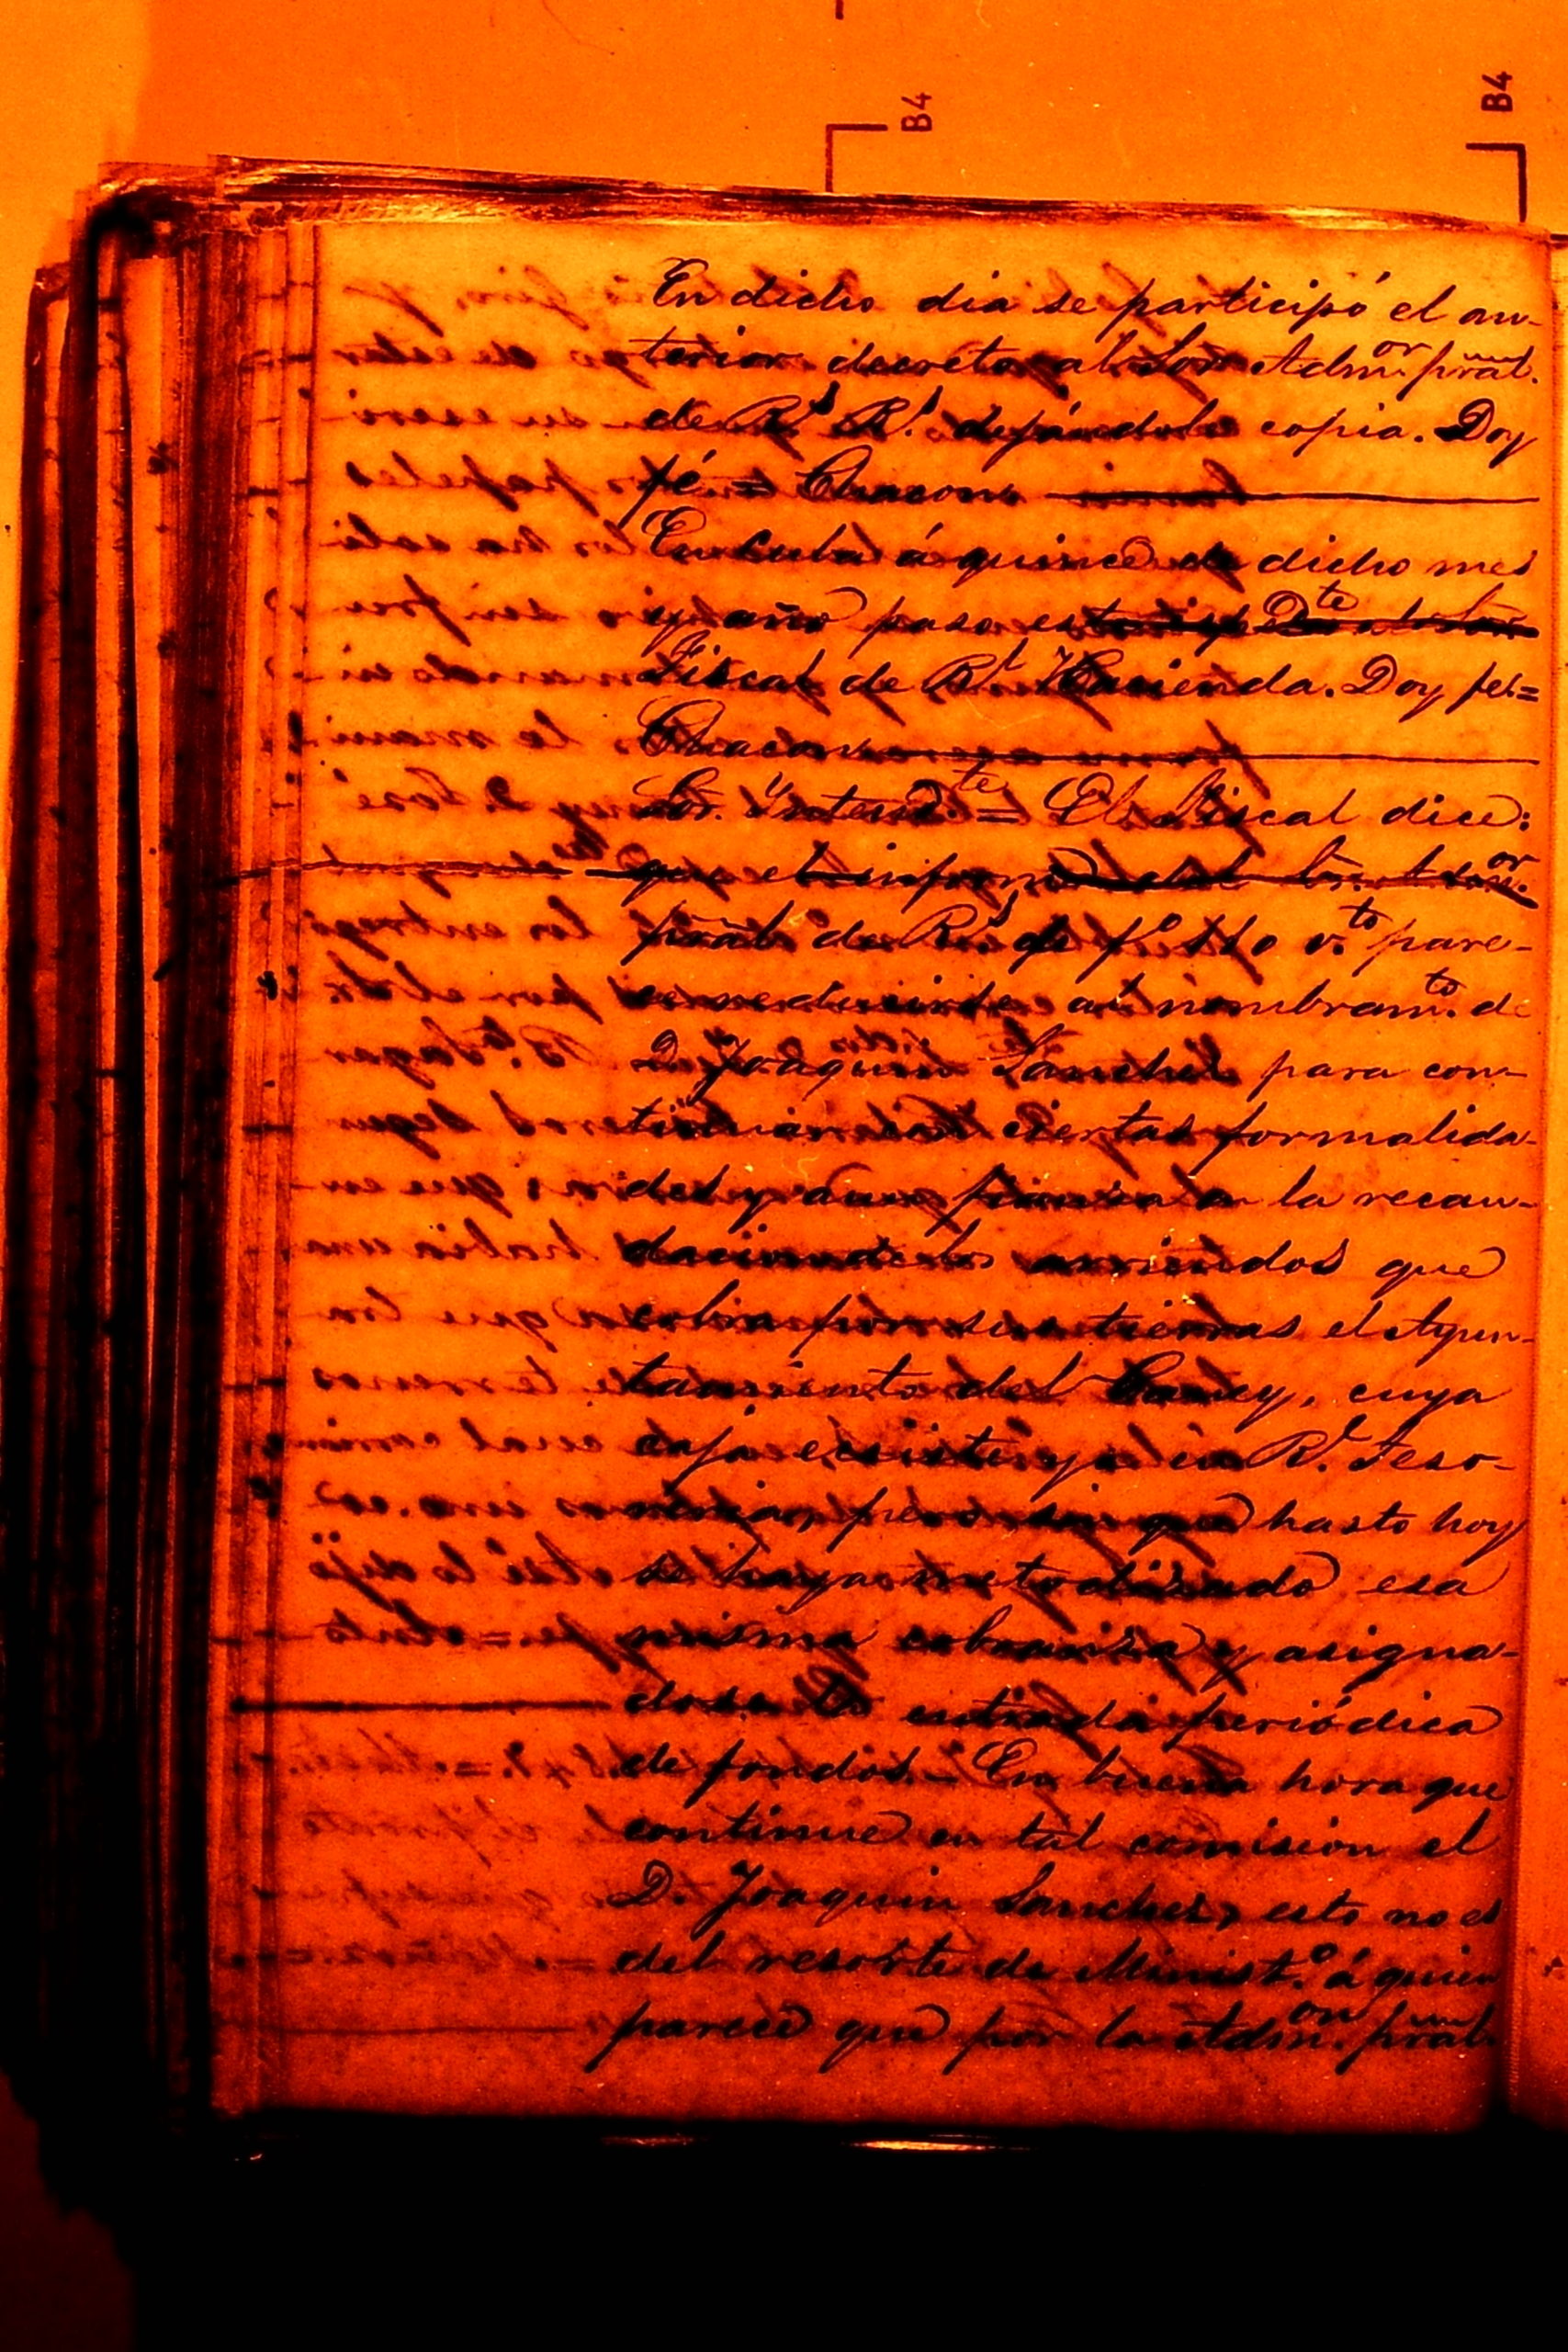 B4
B4
En dicho dia se participó el an-
terior decreto al Sor. Adm.or pral.
de R.s R.s dejándole copia. Doy
fé = Chacon
En Cuba á quince de dicho mes
y año paso este espD.te al Sor.
Fiscal de R.l Hacienda. Doy fe=
Chacon
Sor. Yntend.te = El Fiscal dice:
que el informe del Sor. Adm.or
pral de R.s de f.o 110 v.to pare-
ce reducirse al nombram.to de
D. Joaquin Sanchez para con-
tinuar con ciertas formalida-
des y aun fianza en la recau-
dacion de los arriendos que
cobra por sus tierras el Ayun-
tamiento del Caney, cuya
caja ecsiste ya en R.l Teso-
reria, pero sin que hasta hoy
se haya metodizado esa
misma cobranza y asigna-
dose la entrada periódica
de fondos = En buena hora que
continue en tal comision el
D. Joaquin Sanchez, esto no es
del resorte de Minist.o á quien
parece que por la Adm.on pral.